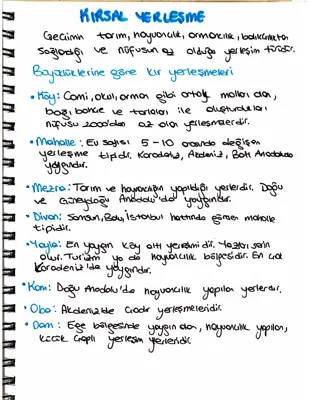 KIRSAL YERLEŞME
Geçimin tarım, hayvancılık, ormancılık, balıkçılıktan
Sağlandığı ve nüfusun az olduğu yerleşim türüdür.
Büyüklüklerine göre kır yerleşmeleri
• Köy: Cami, okul, orman gibi ortak malları olan,
bağ, bahçe ve tarlaları ile oluşturdukları
nüfusu 2000'den az olan yerleşmelerdir.
• Mahalle: Ev sayısı 5-10 arasında değişen
yerleşme tipidir. Karadeniz, Akdeniz, Batı Anadoluda
yaygındır.
• Mezra: Tarım ve hayvancılığın yapıldığı yerlerdir. Doğu
ve Güneydoğu Anadolu'da yaygındır.
• Divan: Samsun, Bolu, İstanbul hattında görülen mahalle
tipidir.
• Yayla: En yaygın köy altı yerleşmedir. Yazları serin
olur. Turizm ya da hayvancılık bölgesidir. En çok
Karadeniz'de yaygındır.
• Kom: Doğu Anadolu'da hayvancılık yapılan yerlerdir.
• Oba: Akdenizde Çadır yerleşmeleridir.
• Dam: Ege bölgesinde yaygın olan, hayvancılık yapılan,
küçük çaplı yerleşim yerleridir.